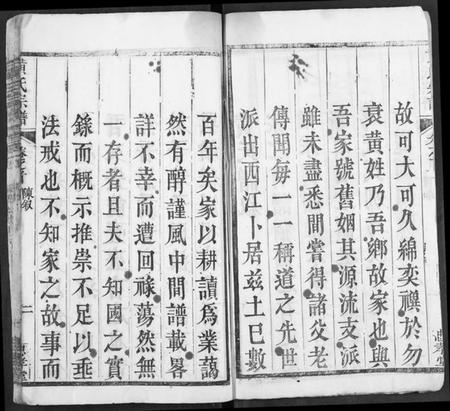 故可大可久綿奕禩於勿
衰黃姓乃吾鄉故家也與
吾家號舊姻其源流支派
雖未盡悉間嘗得諸父老
傳聞每一一稱道之先世
派出西江卜居茲土已數
百年矣家以耕讀為業藹
然有醇謹風中間譜載畧
詳不幸而遭回祿蕩然無
一存者且夫不知國之實
錄而概示推崇不足以垂
法戒也不知家之故事而
黃氏宗譜
陳敘
二